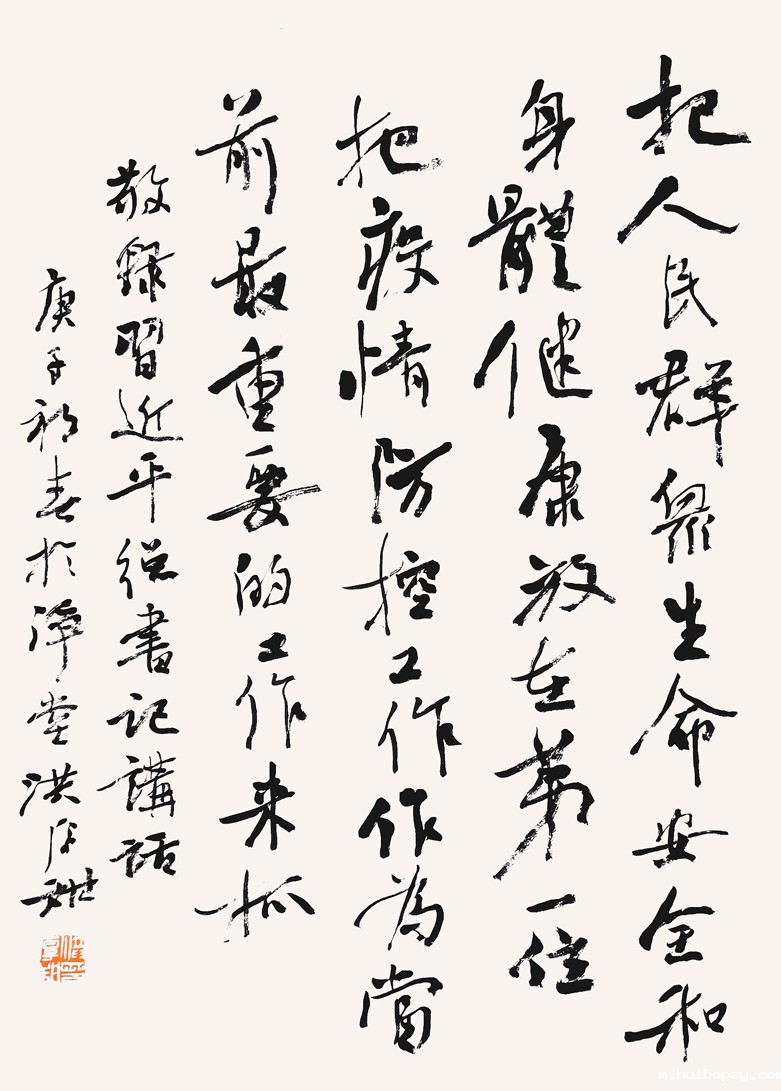 把人民群眾生命安全和
身體健康放在第一位
把疫情防控工作作為當
前最重要的工作来抓
敬錄習近平總書記講話
庚子初春於淨堂洪厚甜
m.huibopay.com